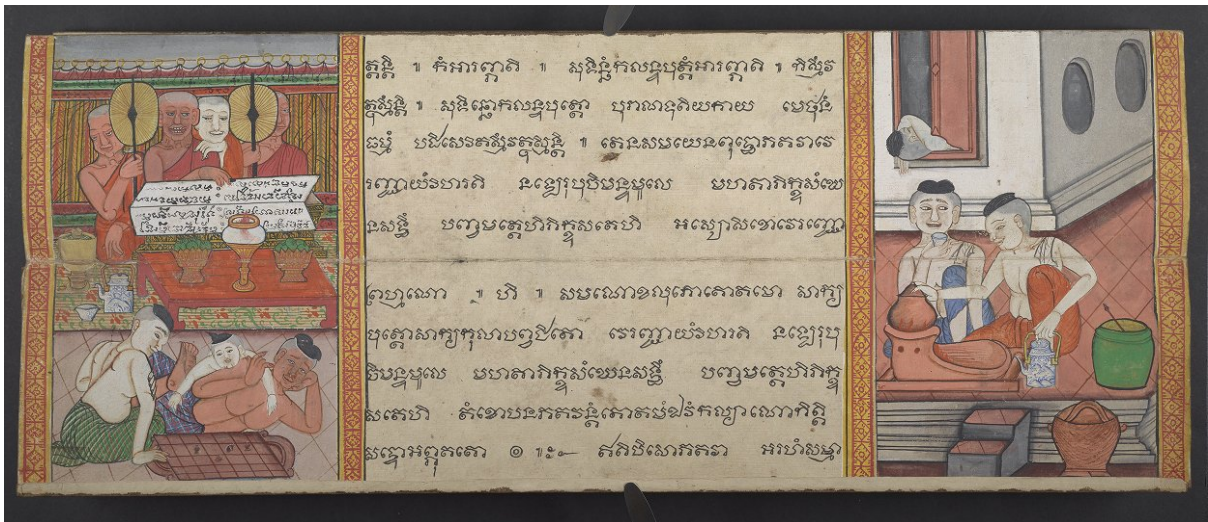 ត្តន្តិ ៕ កំអារញ្ភាតិ ៕ សុទិន្នំកលន្ទបុត្តំអារញ្ភាតិ ៕ កិស្មឹវ
ត្ថុស្មឹន្តិ ៕ សុទិន្នោកលន្ទបុត្តោ បុរាណទុតិយកាយ មេថុនំ
ធម្មំ បដិសេវតស្មឹវត្ថុស្មឹន្តិ ៕ តេនសមយេនពុទ្ធោភគវាវេ
រញ្ជាយំវិហរតិ នឡេរុបុចិមន្ទមូលេ មហតាភិក្ខុសំឃេ
នសទ្ធឹ បញ្ចមត្តេហិភិក្ខុសតេហិ អស្សោសិខោវេរញ្ជោ
ព្រាហ្មណោ ៕ ហិ ៕ សមណោខលុភោគោតមោ សាក្យ
បុត្តោសាក្យកុលាបព្វជិតោ វេរញ្ជាយំវិហរតិ នឡេរុបុ
ចិមន្ទមូលេ មហតាភិក្ខុសំឃេនសទ្ធឹ បញ្ចមត្តេហិភិក្ខុ
សតេហិ តំខោបនភគវន្តំគោតមំឯវំកល្យាណោកិត្តិ
សទ្ទោអព្ភុគតោ ๏ ៕ ឥតិបិសោភគវា អរហំសម្មា